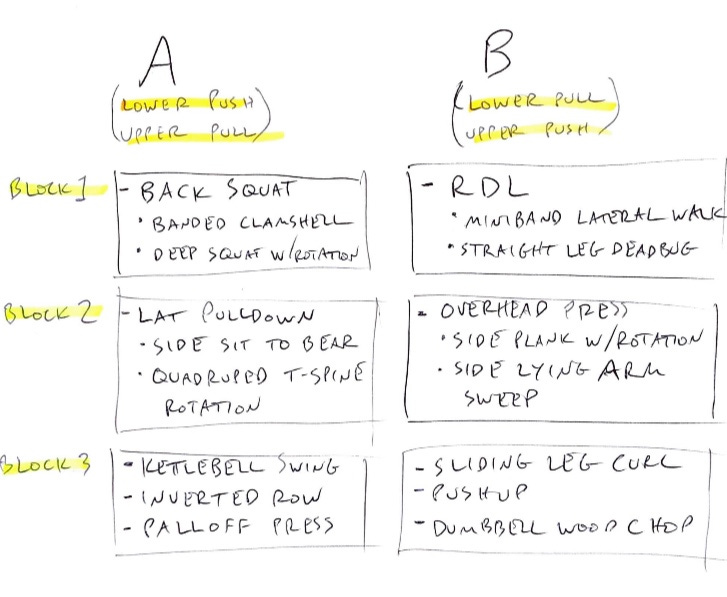 A
(LOWER PUSH
UPPER PULL)
B
(LOWER PULL
UPPER PUSH)
BLOCK 1
- BACK SQUAT
• BANDED CLAMSHELL
• DEEP SQUAT W/ROTATION
- RDL
• MINIBAND LATERAL WALK
• STRAIGHT LEG DEADBUG
BLOCK 2
- LAT PULLDOWN
• SIDE SIT TO BEAR
• QUADRUPED T-SPINE
ROTATION
- OVERHEAD PRESS
• SIDE PLANK W/ROTATION
• SIDE LYING ARM
SWEEP
BLOCK 3
- KETLEBELL SWING
- INVERTED ROW
- PALLOFF PRESS
- SLIDING LEG CURL
- PUSHUP
- DUMBBELL WOOD CHOP